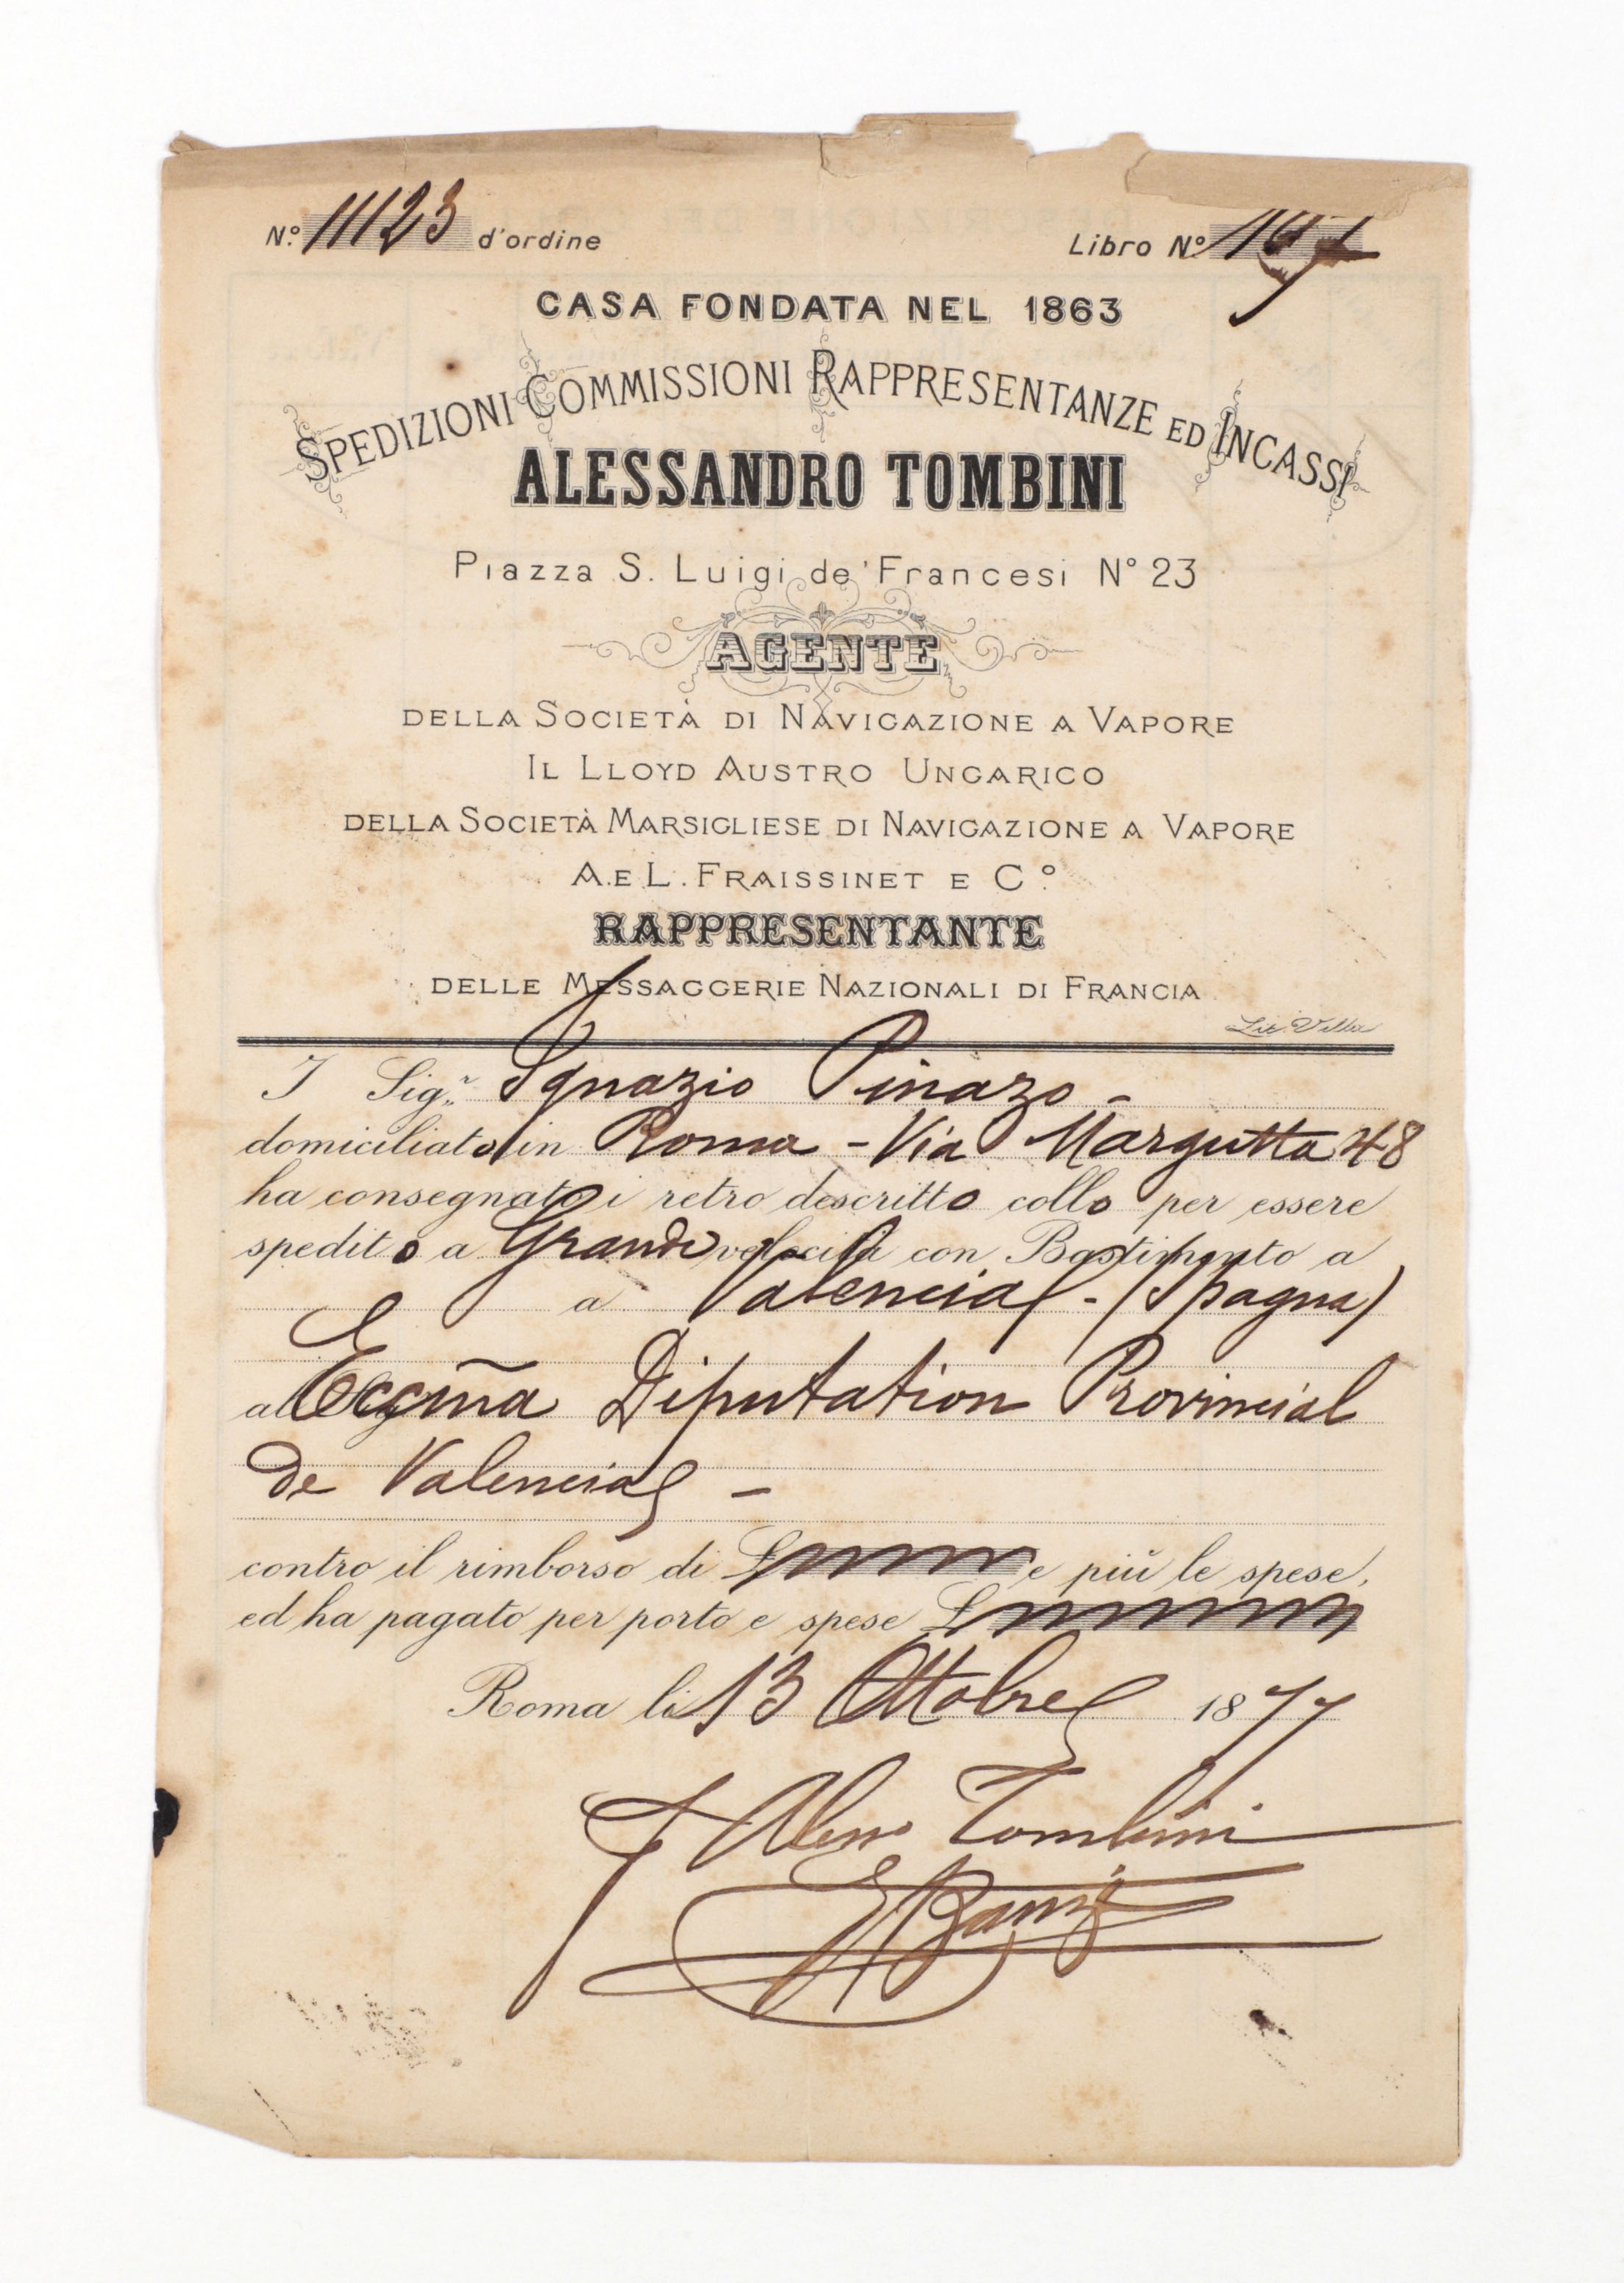 N.º 11123 d'ordine
Libro Nº
CASA FONDATA NEL 1863
SPEDIZIONI COMMISSIONI RAPPRESENTANZE ED INCASSI
ALESSANDRO TOMBINI
Piazza S. Luigi de' Francesi Nº 23
AGENTE
DELLA SOCIETÀ DI NAVIGAZIONE A VAPORE
IL LLOYD AUSTRO UNGARICO
DELLA SOCIETÀ MARSIGLIESE DI NAVIGAZIONE A VAPORE
A. E L. FRAISSINET E Cº.
RAPPRESENTANTE
DELLE MESSAGGERIE NAZIONALI DI FRANCIA
Lit. Villa
I Sigr. Ignazio Pinazo -
domiciliato in Roma - Via Margutta 48
ha consegnato i retro descritto collo per essere
spedito a Grande velocità con Bastimento a
a Valencia - (Spagna)
al Eccma Diputation Provincial
de Valencia -
contro il rimborso di £ e più le spese,
ed ha pagato per porto e spese £
Roma li 13 Ottobre 1877
Tombini